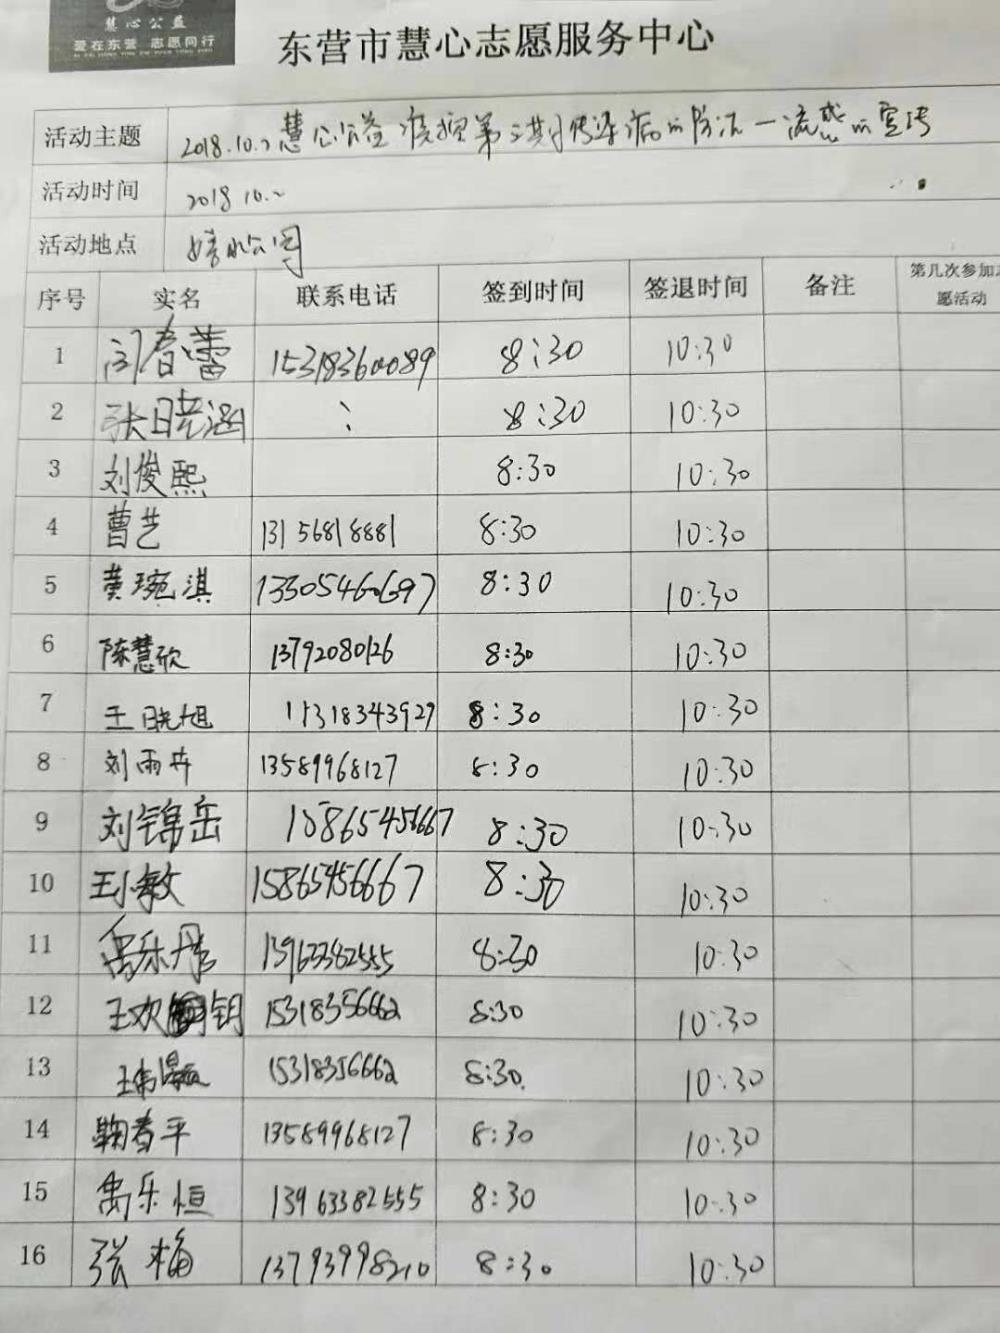 慧心公益
爱在东营 志愿同行
东营市慧心志愿服务中心
活动主题 2018.10.2慧心公益 第三期传染病的防治一流感的宣传
活动时间 2018 10.2
活动地点 公园
序号 实名 联系电话 签到时间 签退时间 备注 第几次参加志
愿活动
1 闫春蕾 15318360089 8:30 10:30
2 张日尧涵 : 8:30 10:30
3 刘俊熙 8:30 10:30
4 曹艺 13156818881 8:30 10:30
5 黄琬淇 13305460697 8:30 10:30
6 陈慧欣 13792080126 8:30 10:30
7 王晓旭 15318343927 8:30 10:30
8 刘雨卉 13589968127 8:30 10:30
9 刘锦岳 15865456667 8:30 10:30
10 王小敏 15865456667 8:30 10:30
11 禹乐彤 13963382555 8:30 10:30
12 王欢钥 15318356662 8:30 10:30
13 王 15318356662 8:30 10:30
14 鞠春平 13589968127 8:30 10:30
15 禹乐恒 13963382555 8:30 10:30
16 张梅 13793998210 8:30 10:30